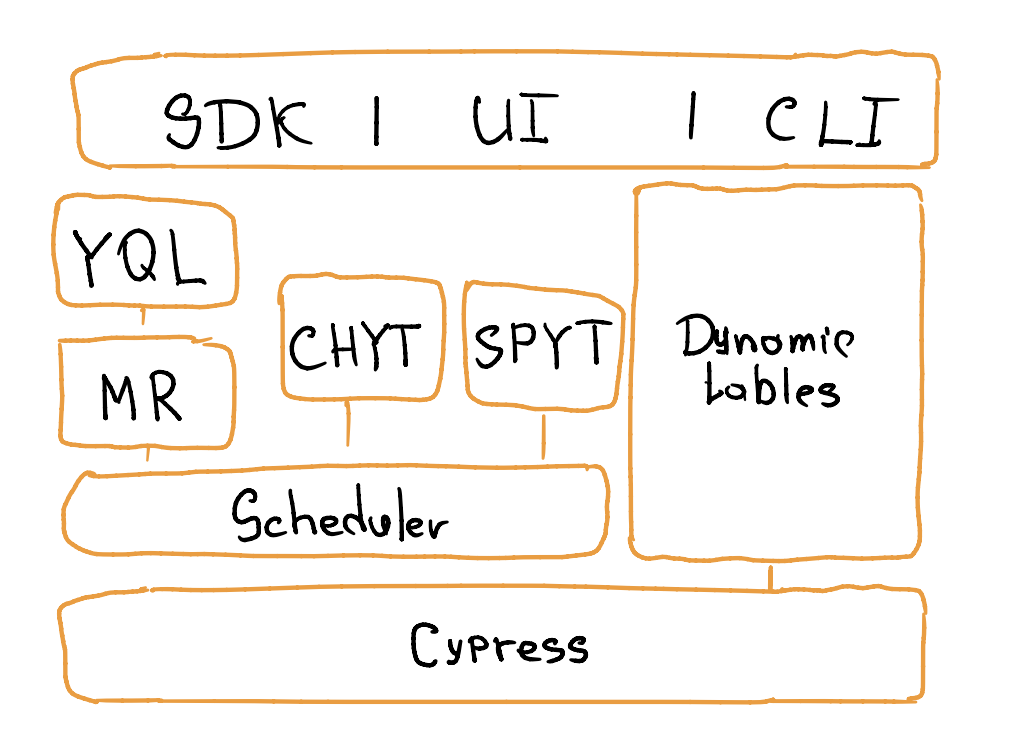 SDK | UI | CLI
YQL
MR
CHYT
SPYT
Dynamic
tables
Scheduler
Cypress